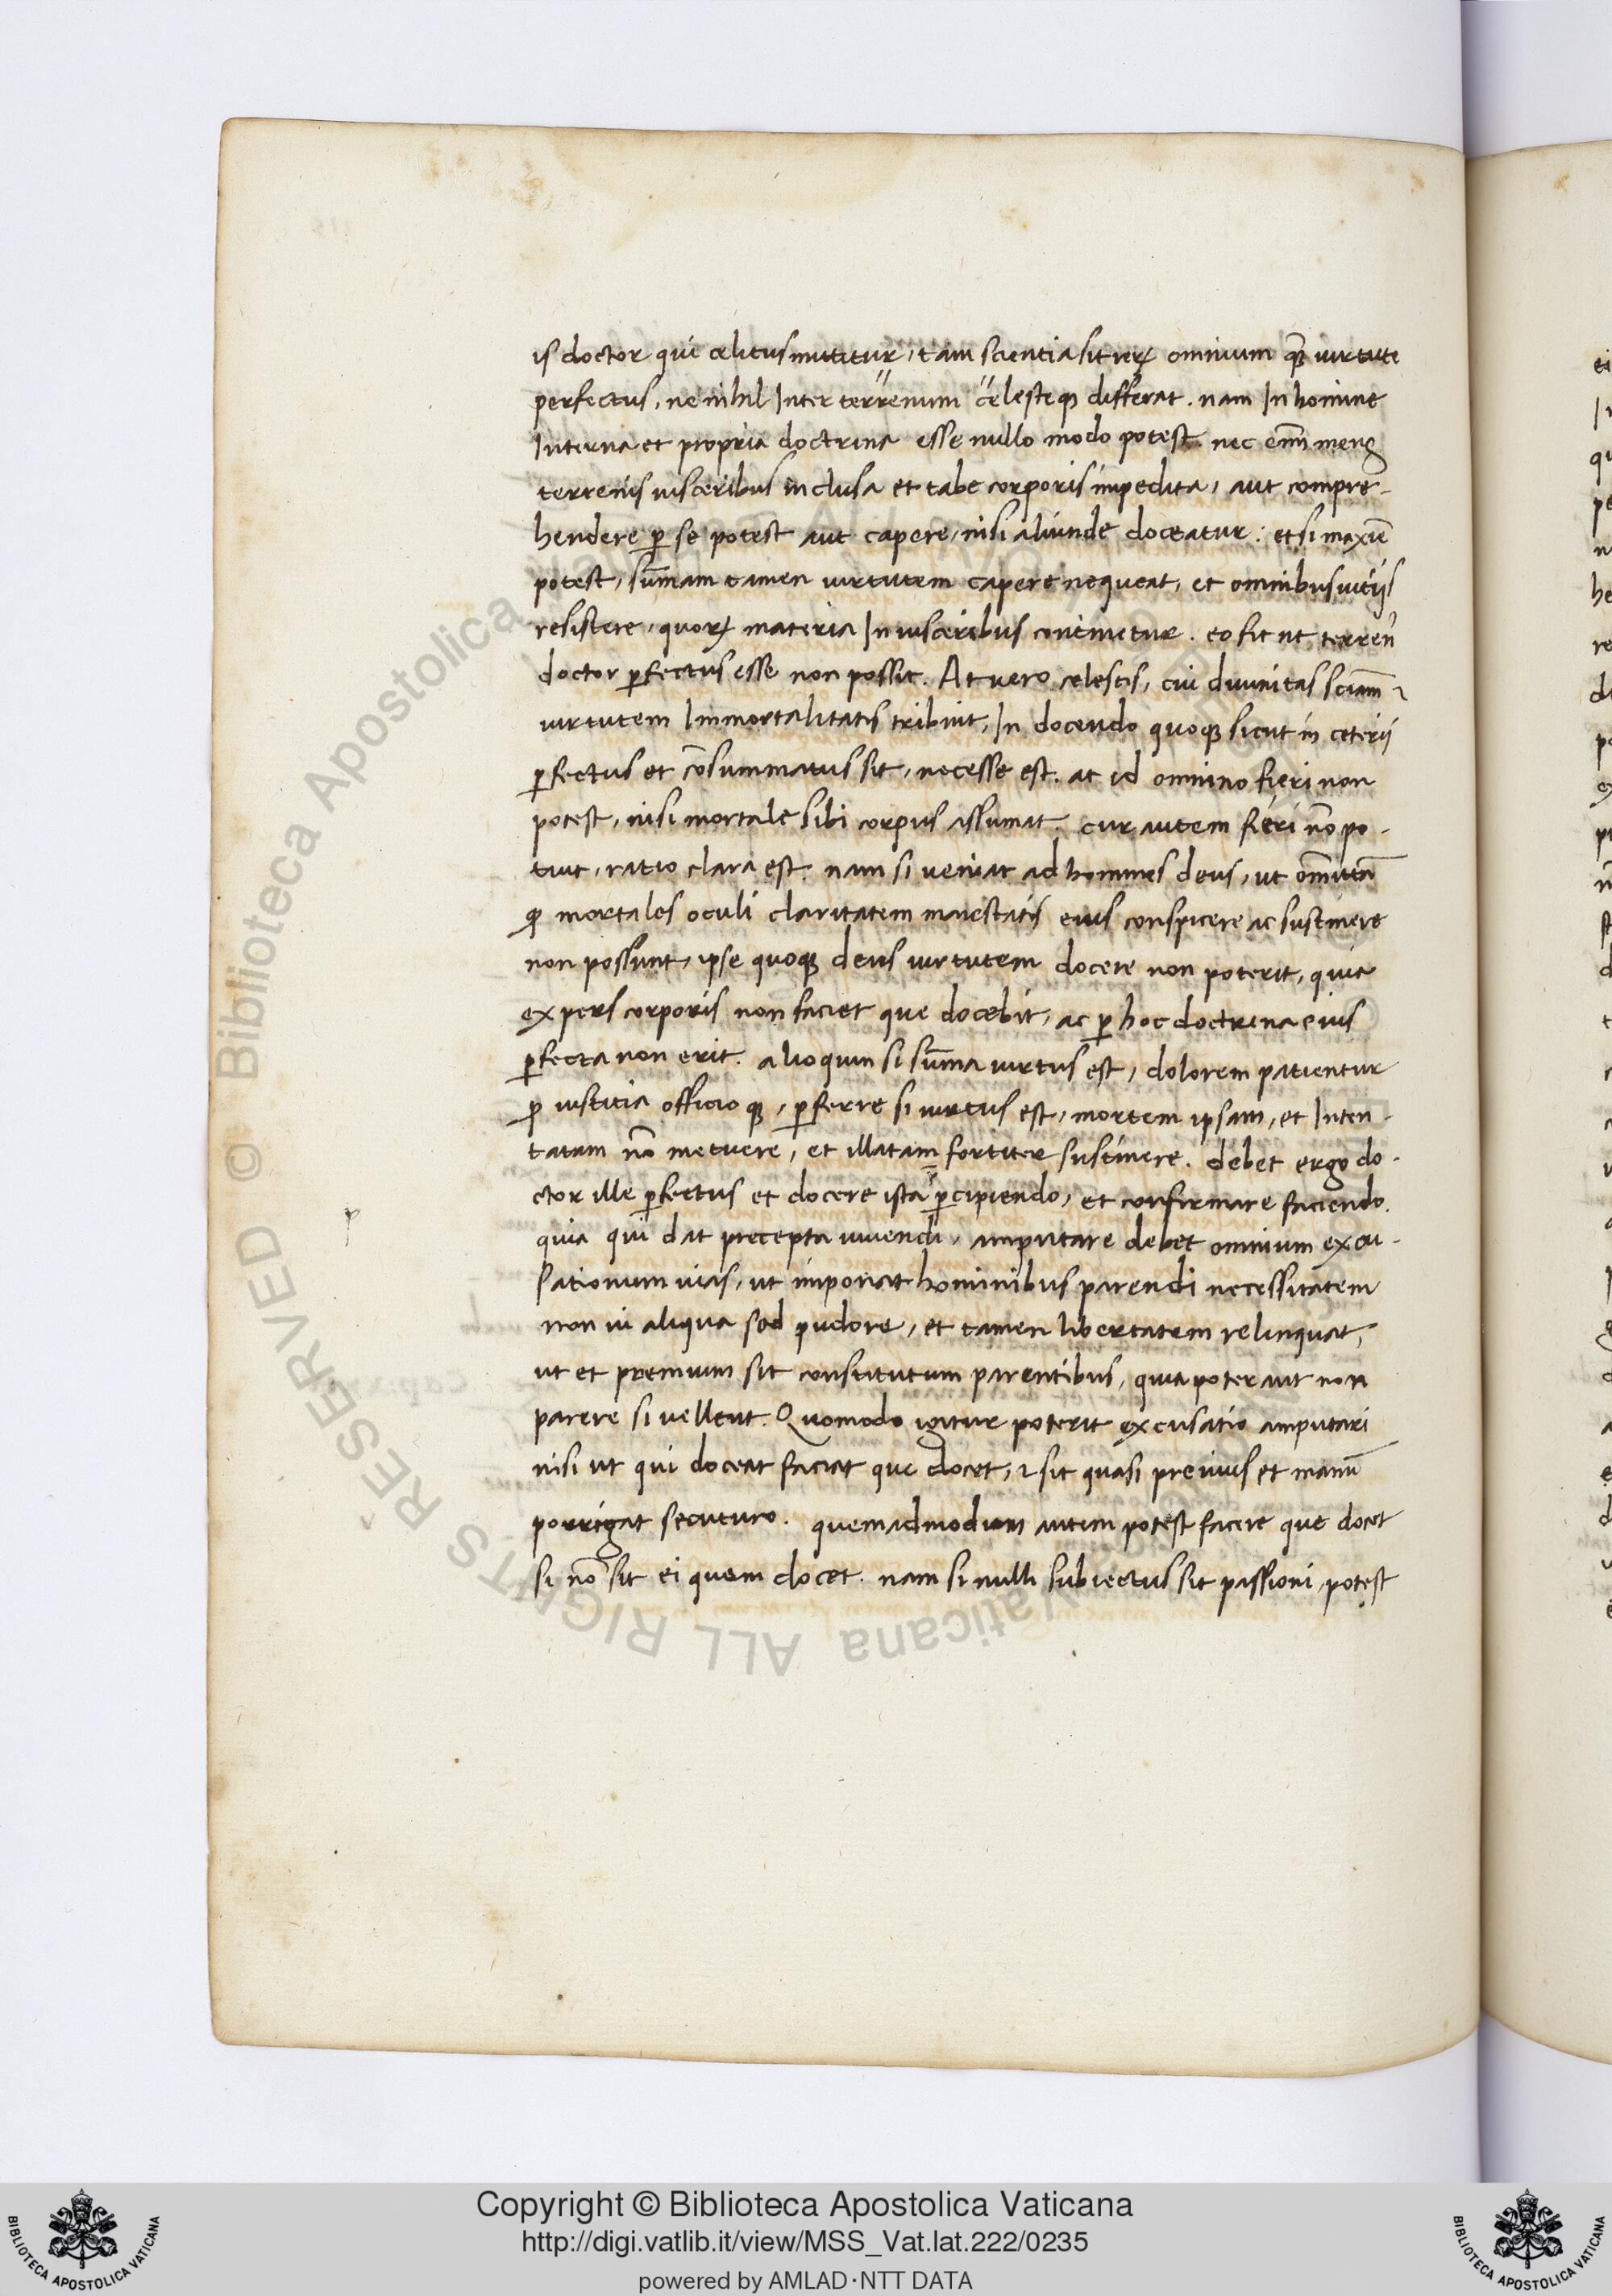 is doctor qui celitus mittitur, tam scientia sit reꝝ omnium qꝫ̃ uirtute
perfectus, ne nihil Inter terrenum celesteqꝫ differat. nam In homine
Interna et propria doctrina esse nullo modo potest. nec em̃ mens
terrenis uisceribus inclusa et tabe corporis impedita, aut compre-
hendere ꝑ se potest aut capere, nisi aliunde doceatur: etsi maxĩe
potest, sũmam tamen uirtutem capere nequeat, et omnibus uitijs
resistere, quoꝝ materia In uisceribus continetur. eo fit ut terren᷒
doctor ꝑfectus esse non possit. At uero celestis, cui diuinitas sciam̃ ⁊
uirtutem Immortalitatis tribuit, In docendo quoqꝫ sicut in ceterij
ꝑfectus et cõsummatus sit, necesse est. at id omnino fieri non
potest, nisi mortale sibi corpus assumat. cur autem fieri nõ po-
tiut, ratio clara est. nam si ueniat ad homines deus, ut om̃ittã
ꝙ mortales oculi claritatem maiestatis eius conspicere ac sustinere
non possunt, ipse quoqꝫ deus uirtutem docere non poterit, quia
expers corporis non faciet que docebit, ac ꝑ hoc doctrina eius
ꝑfecta non erit. alioquin si sũma uirtus est, dolorem patientur
ꝓ iustitia officioqꝫ, ꝑferre si uirtus est, mortem ipsam, et Inten-
tatam nõ metuere, et illatam fortiter sustinere. debet ergo do-
ctor ille ꝑfectus et docere ista ꝑcipiendo, et confirmare faciendo.
quia qui dat precepta uiuendi, amputare debet omnium excu-
sationum uias, ut imponat hominibus parendi necessitatem
non ui aliqua sed pudore, et tamen libertatem relinquat,
ut et premium sit constitutum parentibus, quia poterant non
parere si uellent. Quomodo igitur poterit excusatio amputari
nisi ut qui doceat faciat que docet, ⁊ sit quasi preuius et manũ
porrigat secuturo. quemadmodum autem potest facere que docet
si nõ sit ei quem docet. nam si nulli subiectus sit passioni, potest
Copyright © Biblioteca Apostolica Vaticana
http://digi.vatlib.it/view/MSS_Vat.lat.222/0235
powered by AMLAD·NTT DATA
BIBLIOTECA APOSTOLICA VATICANA
BIBLIOTECA APOSTOLICA VATICANA